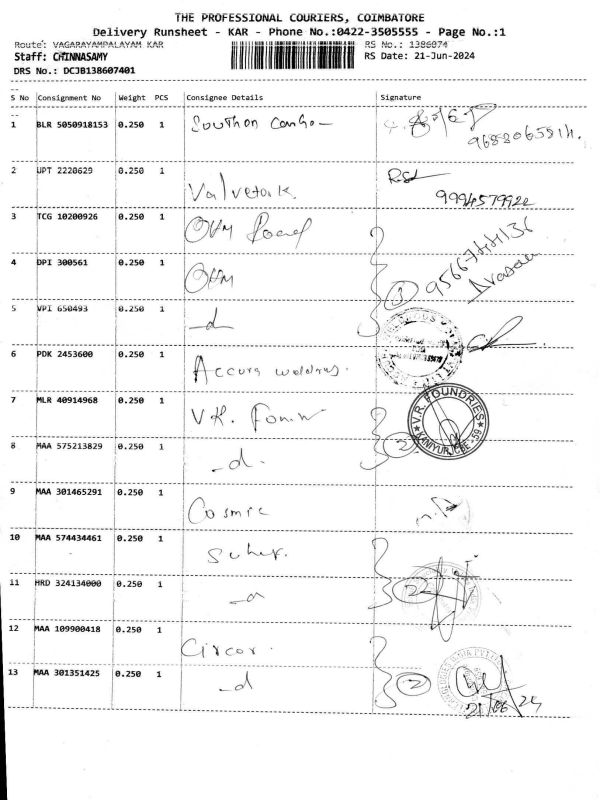 THE PROFESSIONAL COURIERS, COIMBATORE
Delivery Runsheet - KAR - Phone No.:0422-3505555 - Page No.:1
Route: VAGARAYAMPALAYAM KAR RS No.: 1386074
Staff: CHINNASAMY RS Date: 21-Jun-2024
DRS No.: DCJB138607401
S No Consignment No Weight PCS Consignee Details Signature
1 BLR 5050918153 0.250 1
2 UPT 2220629 0.250 1
Valvetork. 9994579922
3 TCG 10200926 0.250 1
9566744136
4 DPI 300561 0.250 1
3
5 VPI 650493 0.250 1
-d
6 PDK 2453600 0.250 1
Accura
7 MLR 40914968 0.250 1
V.R. V.R. FOUNDRIES
KANIYUR, CBE - 59
8 MAA 575213829 0.250 1
-d. 2
9 MAA 301465291 0.250 1
Cosmic
10 MAA 574434461 0.250 1
11 HRD 324134000 0.250 1
2
12 MAA 109900418 0.250 1
Circor.
13 MAA 301351425 0.250 1
-d 2
21/06/24